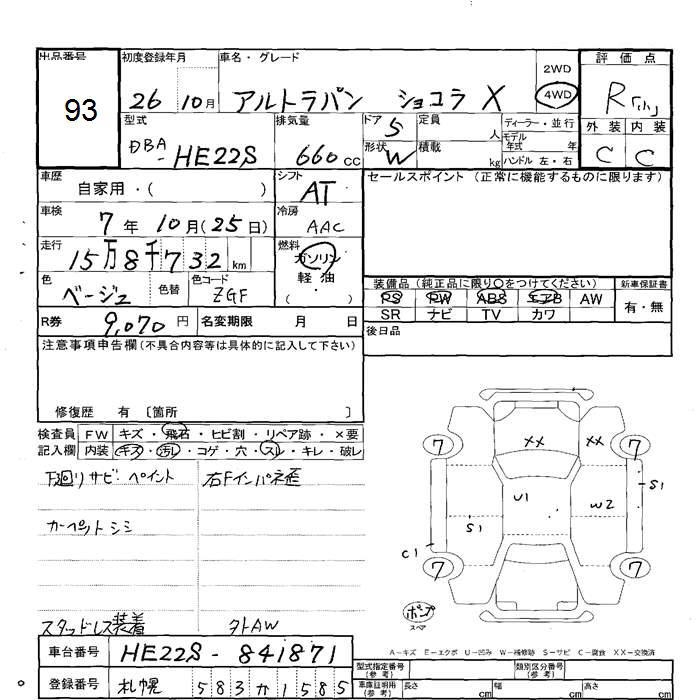 出品番号 初度登録年月 車名・グレード 2WD 評価点
93 26 10月 アルトラパン ショコラ X 4WD R「小」
型式 排気量 ドア 5 定員 人 ディーラー・並行 外装 内装
DBA-HE22S 660cc 形状 W 積載 kg モデル年式 年 ハンドル 左・右 C C
車歴 自家用・( ) シフト AT セールスポイント(正常に機能するものに限ります)
車検 7年 10月(25日) 冷房 AAC
走行 15万8千732km 燃料 ガソリン
軽油
( )
色 ベージュ 色替 色コード ZGF 装備品(純正品に限り○をつけてください) 新車保証書
PS PW ABS エアB AW 有・無
R券 9,070円 名変期限 月 日 SR ナビ TV カワ
注意事項申告欄(不具合内容等は具体的に記入して下さい) 後日品
修復歴 有 〔箇所 〕
検査員 FW キズ・飛石・ヒビ割・リペア跡・×要
記入欄 内装 キズ・汚れ・コゲ・穴・スレ・キレ・破レ
下廻リサビ・ペイント 右Fインパネ歪
カーペットシミ
スタッドレス装着 外AW
XX XX
7 7
U1 W2 S1
S1
C1
7 7
ポンプ
スペア
A-キズ E-エクボ U-凹み W-補修跡 S-サビ C-腐食 XX-交換済
車台番号 HE22S-841871
登録番号 札幌 583か1585
型式指定番号(参考) 類別区分番号(参考)
車庫証明用(参考) 長さ cm 幅 cm 高さ cm